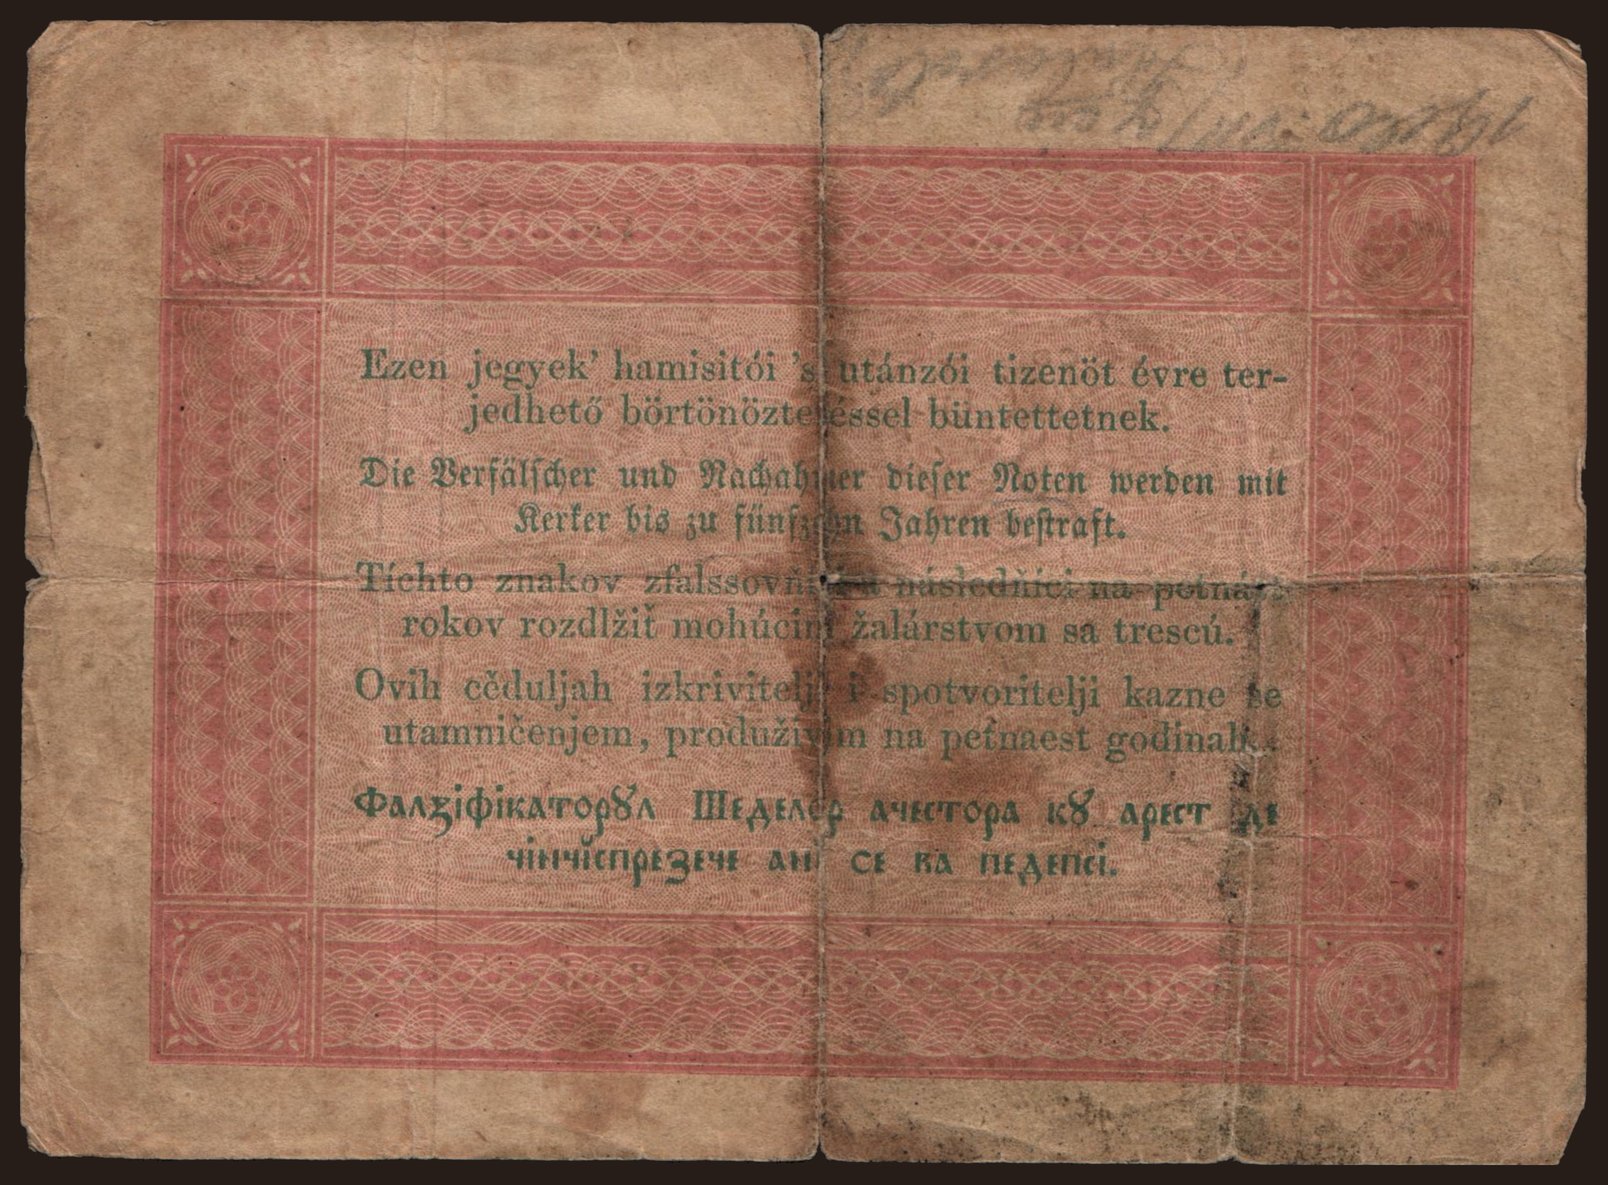 Ezen jegyek' hamisitói 's utánzói tizenöt évre ter-
jedhető börtönöztetéssel büntettetnek.
Die Verfälscher und Nachahmer dieser Noten werden mit
Kerker bis zu fünfzehn Jahren bestraft.
Tíchto znakov zfalssovňíci a následňíci na petnást
rokov rozdlžiť mohúcim žalárstvom sa trescú.
Ovih cěduljah izkrivitelji i spotvoritelji kazne se
utamničenjem, produživim na petnaest godinah.
Фалзіфікаторꙋл Шеделѡр ачестора кꙋ арест де
чінчĭспрезече ані се ва педепсі.